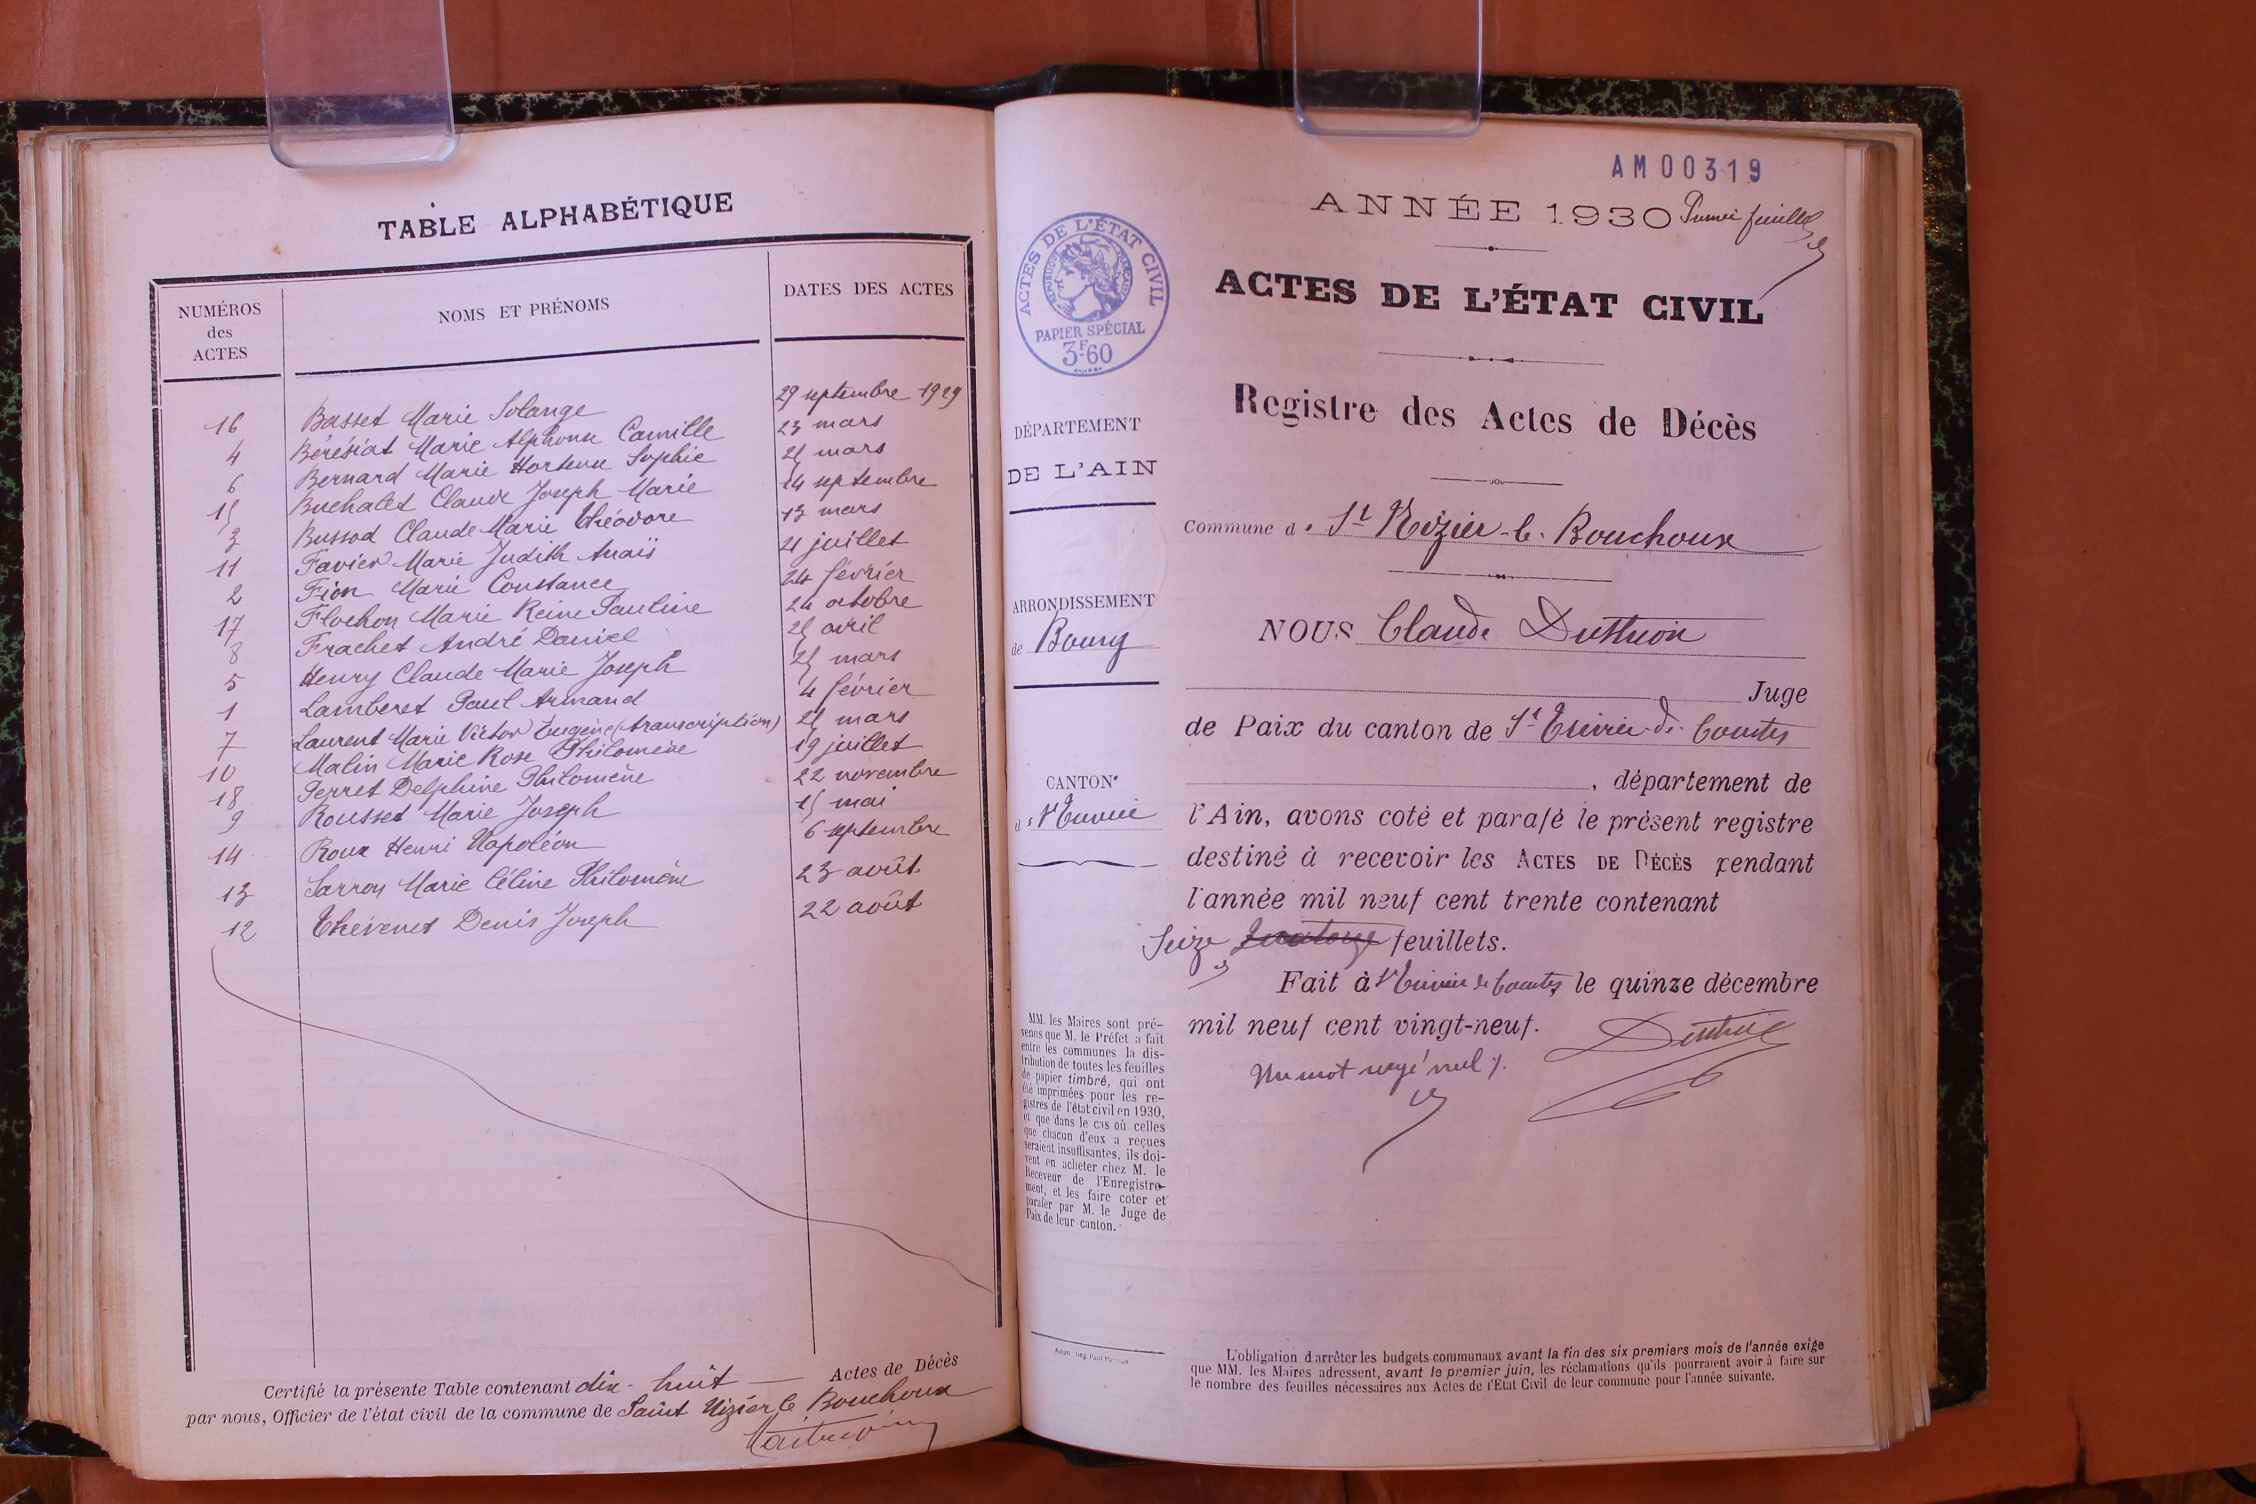 TABLE ALPHABÉTIQUE
NUMÉROS
des
ACTES
NOMS ET PRÉNOMS
DATES DES ACTES
16 Basset Marie Solange 29 septembre 1929
4 Bérésiat Marie Alphonse Camille 23 mars
6 Bernard Marie Hortense Sophie 25 mars
15 Buchalet Claude Joseph Marie 14 septembre
3 Bussod Claude Marie Théodore 13 mars
11 Favier Marie Judith Anaïs 21 juillet
2 Fion Marie Constance 24 février
17 Flochon Marie Reine Pauline 24 octobre
8 Frachet André Daniel 25 avril
5 Henry Claude Marie Joseph 25 mars
1 Lamberet Paul Armand 4 février
7 Laurent Marie Victor Eugène (transcription) 25 mars
10 Malin Marie Rose Philomène 19 juillet
18 Perret Delphine Philomène 22 novembre
9 Rousset Marie Joseph 15 mai
14 Roux Henri Napoléon 6 septembre
13 Sarron Marie Céline Philomène 23 août
12 Thévenet Denis Joseph 22 août
Certifié la présente Table contenant dix-huit Actes de Décès
par nous, Officier de l'état civil de la commune de Saint Nizier le Bouchoux
AM00319
ANNÉE 1930
ACTES DE L'ÉTAT CIVIL
RÉPUBLIQUE FRANÇAISE
PAPIER SPÉCIAL
3F.60
ACTES DE L'ÉTAT CIVIL
Registre des Actes de Décès
DÉPARTEMENT
DE L'AIN
Commune de St Nizier-le-Bouchoux
ARRONDISSEMENT
de Bourg
NOUS Claude
Juge
de Paix du canton de St Trivier-de-Courtes
, département de
CANTON
de St Trivier
l'Ain, avons coté et parafé le présent registre
destiné à recevoir les ACTES DE DÉCÈS pendant
l'année mil neuf cent trente contenant
Seize feuillets.
Fait à St Trivier de Courtes le quinze décembre
mil neuf cent vingt-neuf.
Un mot rayé nul
MM. les Maires sont pré-
venus que M. le Préfet a fait
entre les communes la dis-
tribution de toutes les feuilles
de papier timbré, qui ont
été imprimées pour les re-
gistres de l'état civil en 1930,
et que dans le cas où celles
que chacun d'eux a reçues
seraient insuffisantes, ils doi-
vent en acheter chez M. le
Receveur de l'Enregistre-
ment, et les faire coter et
parafer par M. le Juge de
Paix de leur canton.
L'obligation d'arrêter les budgets communaux avant la fin des six premiers mois de l'année exige
que MM. les Maires adressent, avant le premier juin, les réclamations qu'ils pourraient avoir à faire sur
le nombre des feuilles nécessaires aux Actes de l'État Civil de leur commune pour l'année suivante.